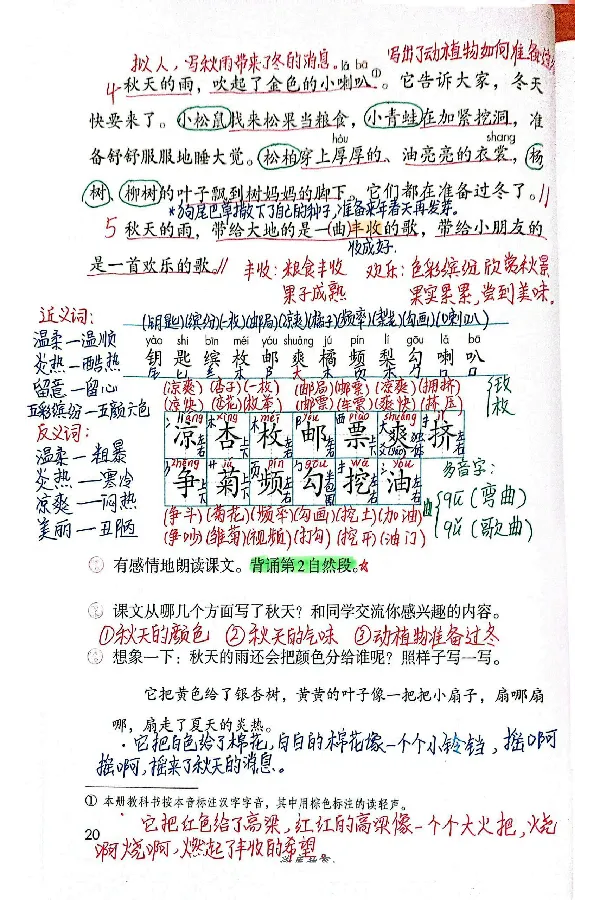 拟人，写秋雨带来了冬的消息。
写出了动植物如何准备
lǎ bā
4 秋天的雨，吹起了金色的小喇叭①。它告诉大家，冬天
快要来了。小松鼠找来松果当粮食，小青蛙在加紧挖洞，准
hòu shang
备舒舒服服地睡大觉。松柏穿上厚厚的、油亮亮的衣裳，杨
树、柳树的叶子飘到树妈妈的脚下。它们都在准备过冬了。//
*狗尾巴草撒下了自己的种子，准备来年春天再发芽。
5 秋天的雨，带给大地的是一(曲)丰收的歌，带给小朋友的
收成好
是一首欢乐的歌。// 丰收：粮食丰收 欢乐：色彩缤纷，欣赏秋景
果子成熟 果实累累，尝到美味。
近义词：
(钥匙)(缤纷)(一枚)(邮局)(凉爽)(橘子)(频率)(梨芸)(勾画)(喇叭)
yào shi bīn méi yóu shuǎng jú pín lí gōu lǎ bā
温柔—温顺
钥 匙 缤 枚 邮 爽 橘 频 梨 勾 喇 叭
炎热—酷热
留意—留心
(凉爽)(杏子)(一枚)(邮局)(邮票)(凉爽)(拥挤)
(凉快)(杏花)(枚举)(邮票)(车票)(爽快)(挤压)
玫
枚
五彩缤纷—五颜六色
liáng xìng méi yóu piào shuǎng jǐ
凉 杏 枚 邮 票 爽 挤
反义词：
温柔—粗暴
炎热—寒冷
凉爽—闷热
美丽—丑陋
zhēng jú pín gōu wā yóu
争 菊 频 勾 挖 油
多音字：
曲 qū (弯曲)
qǔ (歌曲)
(争斗)(菊花)(频率)(勾画)(挖土)(加油)
(争吵)(雏菊)(视频)(打勾)(挖开)(油门)
有感情地朗读课文。背诵第2自然段。★
课文从哪几个方面写了秋天？和同学交流你感兴趣的内容。
①秋天的颜色 ②秋天的气味 ③动植物准备过冬
想象一下：秋天的雨还会把颜色分给谁呢？照样子写一写。
它把黄色给了银杏树，黄黄的叶子像一把把小扇子，扇哪扇
哪，扇走了夏天的炎热。
·它把白色给了棉花，白白的棉花像一个个小铃铛，摇啊
摇啊，摇来了秋天的消息。
① 本册教科书按本音标注汉字字音，其中用棕色标注的读轻声。
20
·它把红色给了高粱，红红的高粱像一个个大火把，烧
啊烧啊，燃起了丰收的希望